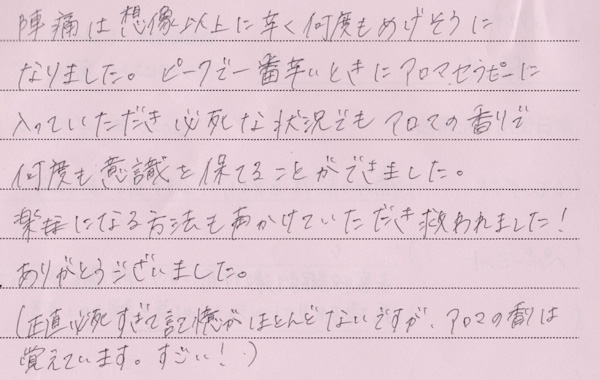 陣痛は想像以上に辛く何度もめげそうに
なりました。ピークで一番辛いときにアロマセラピーに
入っていただき必死な状況でもアロマの香りで
何度も意識を保てることができました。
楽になる方法も声かけていただき救われました!
ありがとうございました。
(正直必死すぎて記憶がほとんどないですが、アロマの香りは
覚えています。すごい!)